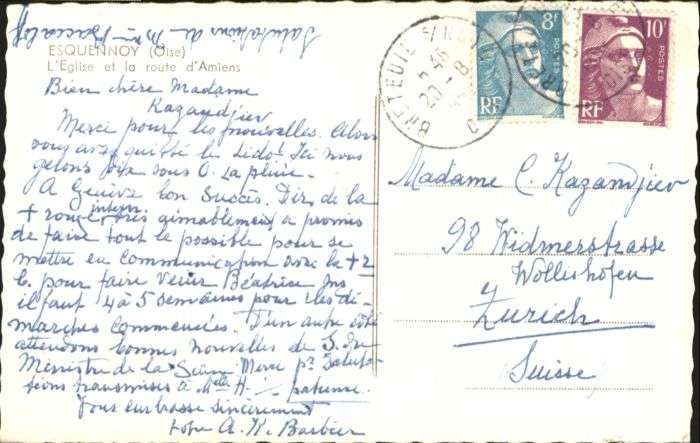 Salutations de Mme
ESQUENNOY (Oise)
L'Eglise et la route d'Amiens
Bien chère Madame
Kazandjiev
Merci pour les nouvelles. Alors
vous avez quitté le Lido! Ici nous
gelons sous 0. La pluie.
A Genève bon succès. Dir. de la
+ rouge intern. très aimablement a promis
de faire tout le possible pour se
mettre en communication avec la +r
b. pour faire venir Béatrice
il faut 4 à 5 semaines pour les dé-
marches commencées. D'un autre côté
attendons bonnes nouvelles de
Ministre de la Merci pr Saluta-
tions transmises à Melle H. patience.
Vous embrasse sincèrement
votre A. K. Barbier
BRETEUIL S/NOYE
8F
10F
POSTES
RF
RF
Madame C. Kazandjiev
98 Widmerstrasse
Wollishofen
Zurich
Suisse